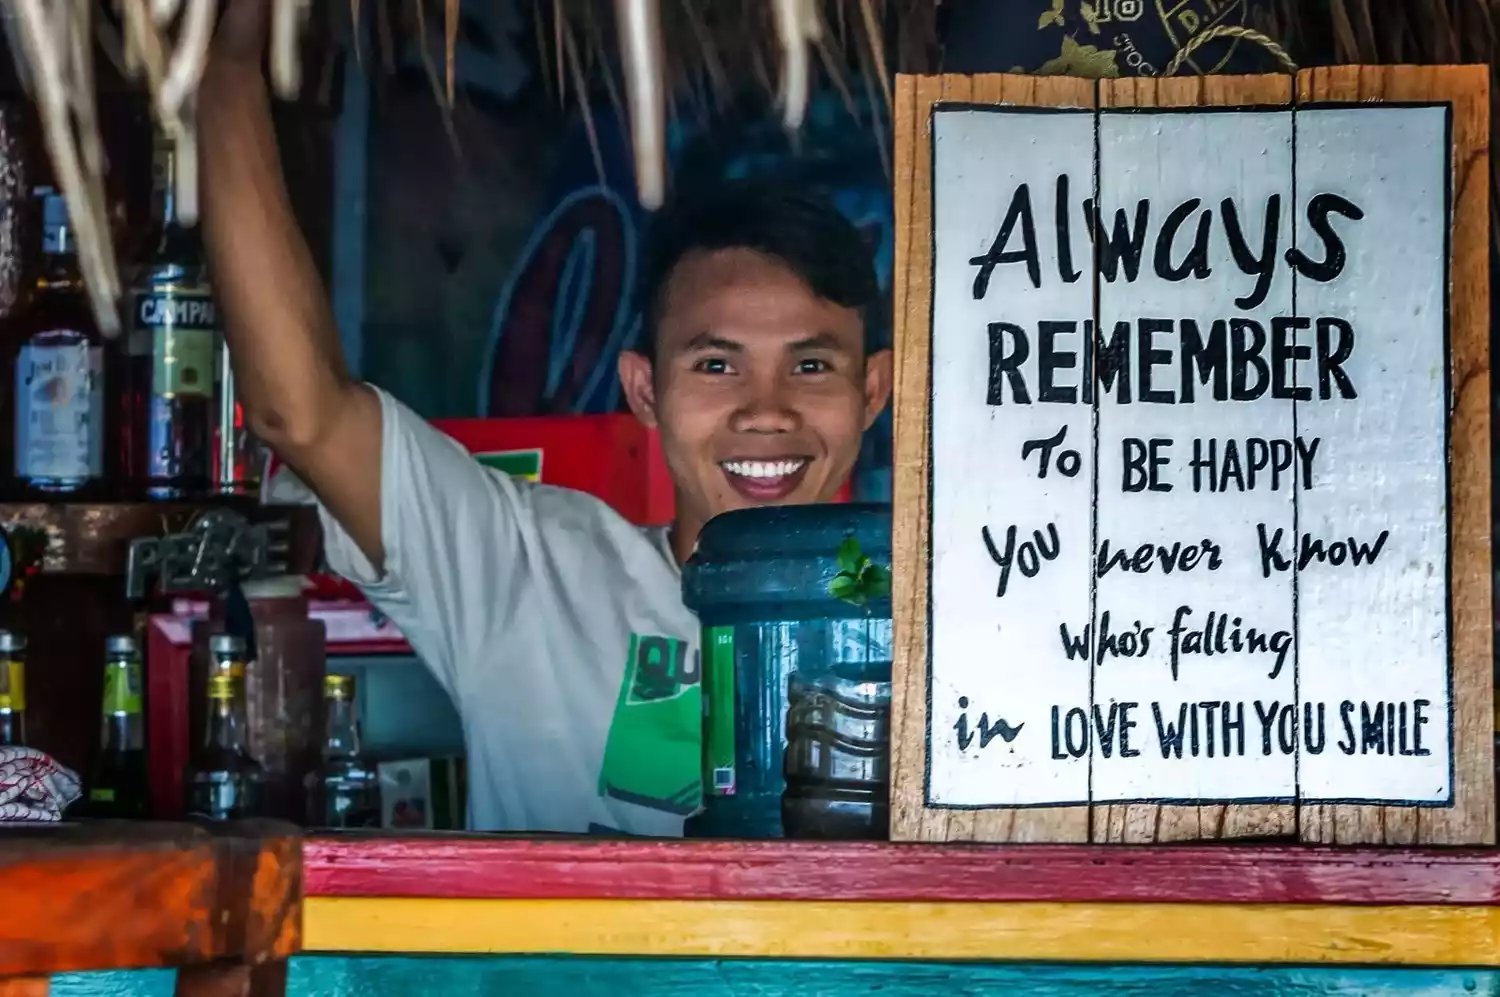 18
D.I.
STOC
Always
REMEMBER
To BE HAPPY
You never Know
Who's falling
in LOVE WITH YOU SMILE
CAMPA
JIM B
QU